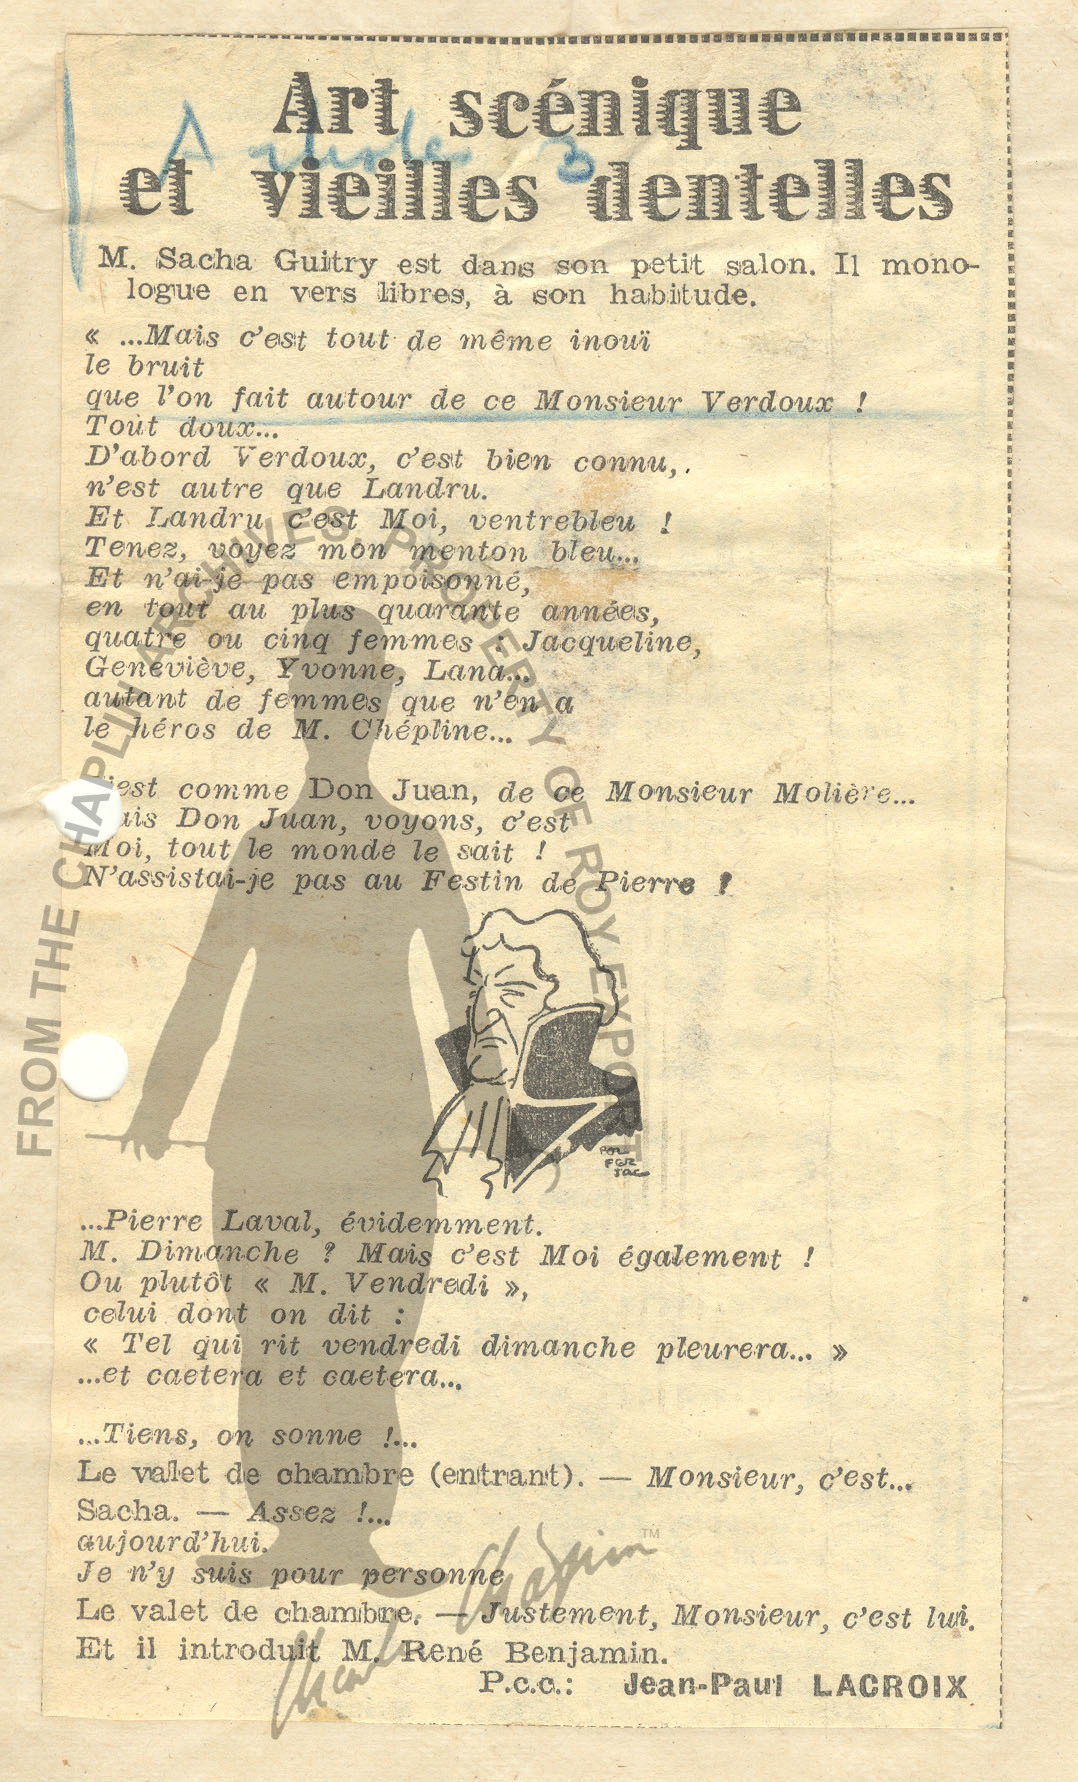 Art scénique
et vieilles dentelles
3
M. Sacha Guitry est dans son petit salon. Il mono-
logue en vers libres, à son habitude.
« ...Mais c'est tout de même inouï
le bruit
que l'on fait autour de ce Monsieur Verdoux !
Tout doux...
D'abord Verdoux, c'est bien connu,.
n'est autre que Landru.
Et Landru c'est Moi, ventrebleu !
Tenez, voyez mon menton bleu...
Et n'ai-je pas empoisonné,
en tout au plus quarante années,
quatre ou cinq femmes : Jacqueline,
Geneviève, Yvonne, Lana...
autant de femmes que n'en a
le héros de M. Chépline...
'est comme Don Juan, de ce Monsieur Molière...
ais Don Juan, voyons, c'est
Moi, tout le monde le sait !
N'assistai-je pas au Festin de Pierre !
POL
FER
JAC
...Pierre Laval, évidemment.
M. Dimanche ? Mais c'est Moi également !
Ou plutôt « M. Vendredi »,
celui dont on dit :
« Tel qui rit vendredi dimanche pleurera... »
...et caetera et caetera...
...Tiens, on sonne !...
Le valet de chambre (entrant). — Monsieur, c'est...
Sacha. — Assez !...
aujourd'hui.
Je n'y suis pour personne
Le valet de chambre. — Justement, Monsieur, c'est lui.
Et il introduit M. René Benjamin.
P.c.c.: Jean-Paul LACROIX
FROM THE CHAPLIN ARCHIVES, PROPERTY OF ROY EXPORT
Charles Chaplin TM